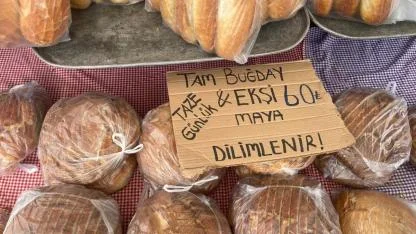 TAM BUĞDAY
TAZE GÜNLÜK & EKŞİ 60₺
MAYA
DİLİMLENİR!